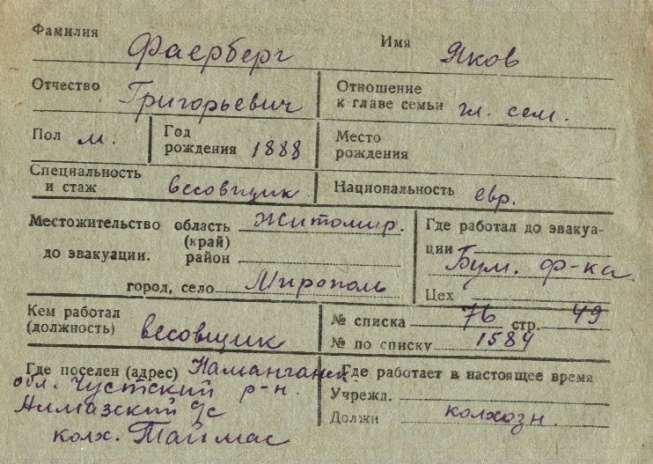 Фамилия Фаерберг Имя Яков
Отчество Григорьевич Отношение к главе семьи гл. сем.
Пол м. Год рождения 1888 Место рождения
Специальность и стаж весовщик Национальность евр.
Местожительство область Житомир. Где работал до эвакуа-
(край) ции
до эвакуации. район Бум. ф-ка
город, село Мирополь Цех
Кем работал (должность) весовщик № списка 76 стр. 49
№ по списку 1584
Где поселен (адрес) Наманганск. Где работает в настоящее время
обл. Чустский р-н. Учрежд.
Алмазский с/с Должн колхозн.
колх. Таймас